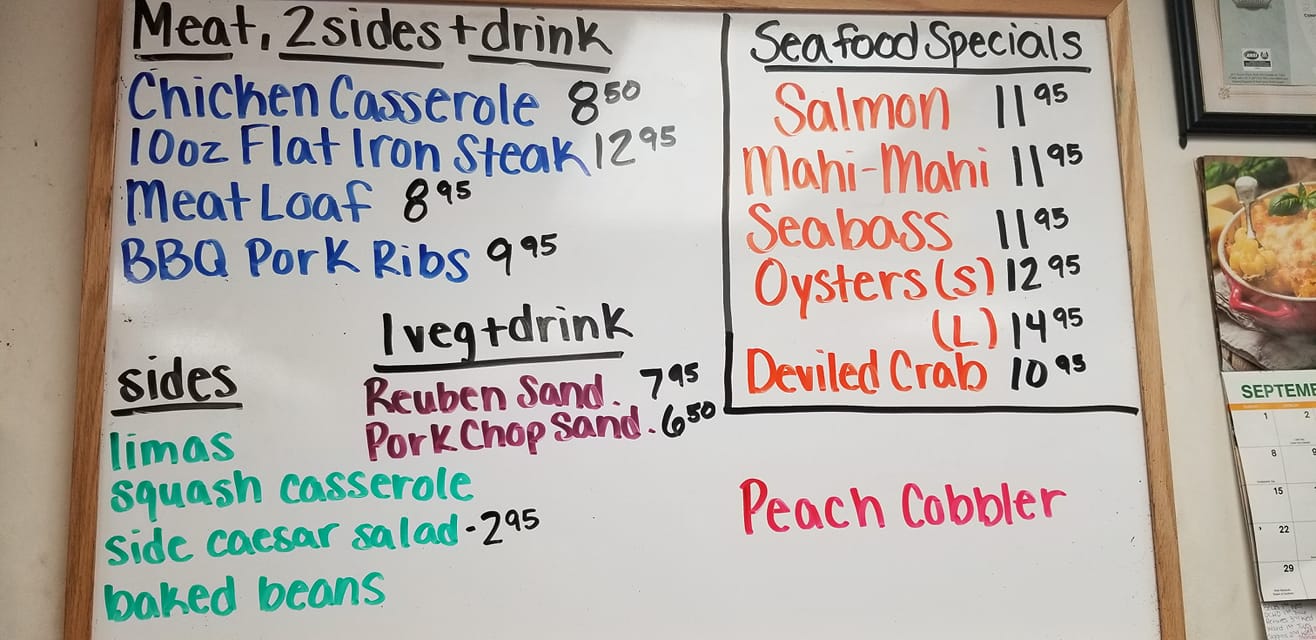 Meat, 2 sides + drink
Chicken Casserole 8 50
10oz Flat Iron Steak 12 95
Meat Loaf 8 95
BBQ Pork Ribs 9 95
1 veg + drink
Reuben Sand. 7 95
Pork Chop Sand. 6 50
sides
limas
squash casserole
side caesar salad - 2 95
baked beans
Seafood Specials
Salmon 11 95
Mahi-Mahi 11 95
Seabass 11 95
Oysters (S) 12 95
(L) 14 95
Deviled Crab 10 95
Peach Cobbler
SEPTEMB
1 2
8 9
15
22
29